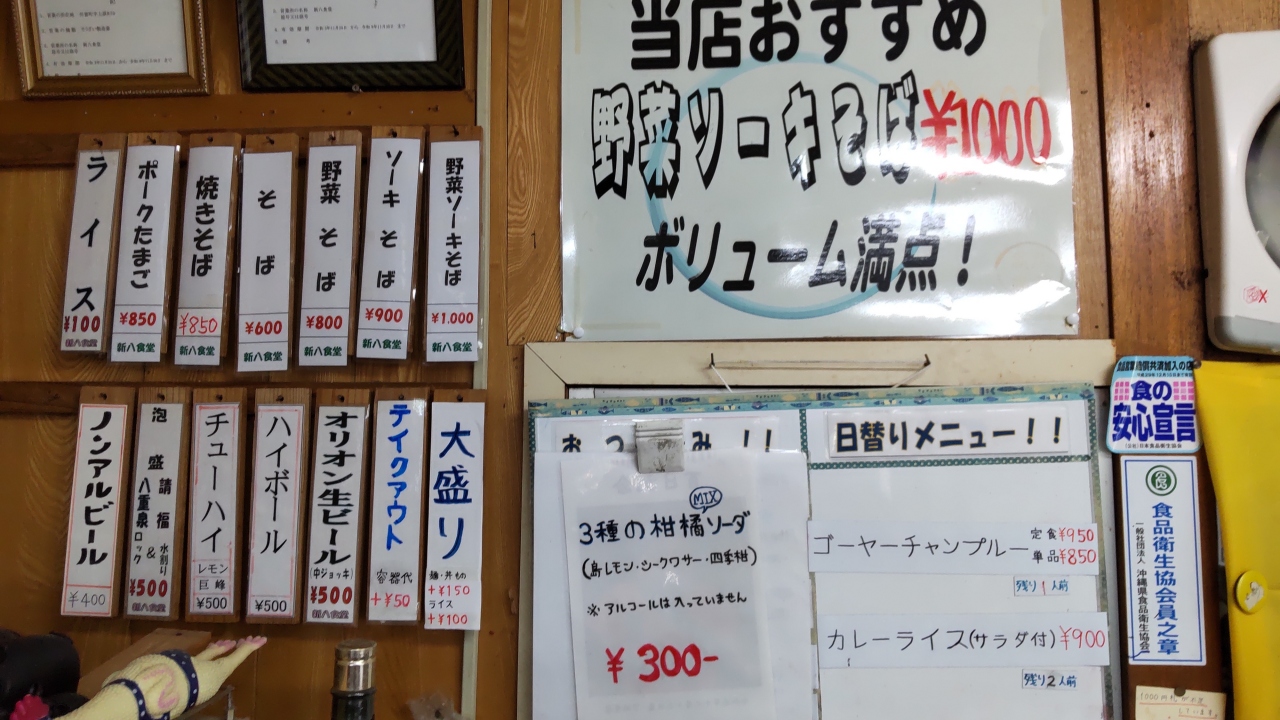 当店おすすめ
野菜ソーキそば ¥1000
ボリューム満点！
野菜ソーキそば
¥1.000
新八食堂
ソーキそば
¥900
新八食堂
野菜そば
¥800
新八食堂
そば
¥600
新八食堂
焼きそば
¥850
新八食堂
ポークたまご
¥850
新八食堂
ライス
¥100
新八食堂
大盛り
麺・丼もの
+¥150
ライス
+¥100
テイクアウト
容器代
+¥50
オリオン生ビール
(中ジョッキ)
¥500
新八食堂
ハイボール
¥500
チューハイ
レモン
巨峰
¥500
泡盛
請福
&
八重泉
水割り
ロック
¥500
新八食堂
ノンアルビール
¥400
日替りメニュー！！
ゴーヤーチャンプルー 定食¥950
単品¥850
残り1人前
カレーライス(サラダ付) ¥900
残り2人前
MIX
3種の柑橘ソーダ
(島レモン・シークワサー・四季柑)
※アルコールは入っていません
¥300-
食の
安心宣言
食品衛生協会員之章
一般社団法人 沖縄県食品衛生協会